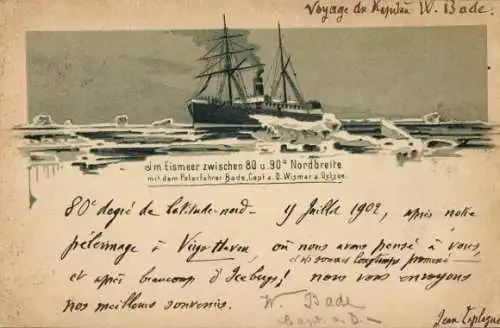 Voyage du Kapitän W. Bade.
Im Eismeer zwischen 80 u. 90° Nordbreite
mit dem Polarfahrer Bade, Capt a. D. Wismar a. Ostsee.
80e degré de latitude-nord - 9 Juillet 1902, après notre
pélerinage à Virgo Haven, où nous avons pensé à vous,
et si souvent longtemps promené
et après beaucoup d'Icebergs! nous vous envoyons
nos meilleurs souvenirs.
W. Bade
Capt. a. D.
Jean